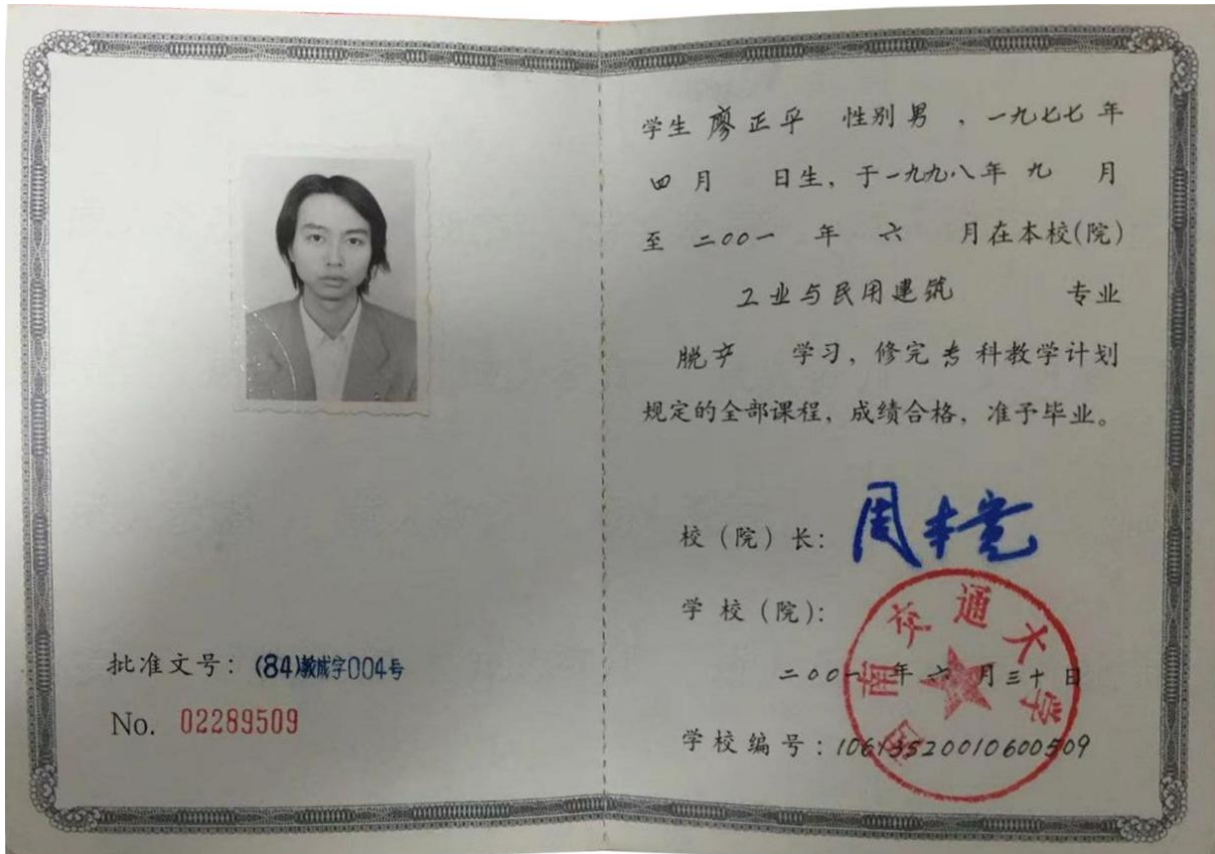 批准文号：(84)教成字004号
No. 02289509
学生 廖正乎 性别 男 ，一九七七 年
四 月 日生，于一九九八年 九 月
至 二00一 年 六 月在本校(院)
工业与民用建筑 专业
脱产 学习，修完 专 科教学计划
规定的全部课程，成绩合格，准予毕业。
校（院）长：周本宽
学 校（院）：
西南交通大学
二00一 年 六 月三十 日
学校编号：10613520010600509